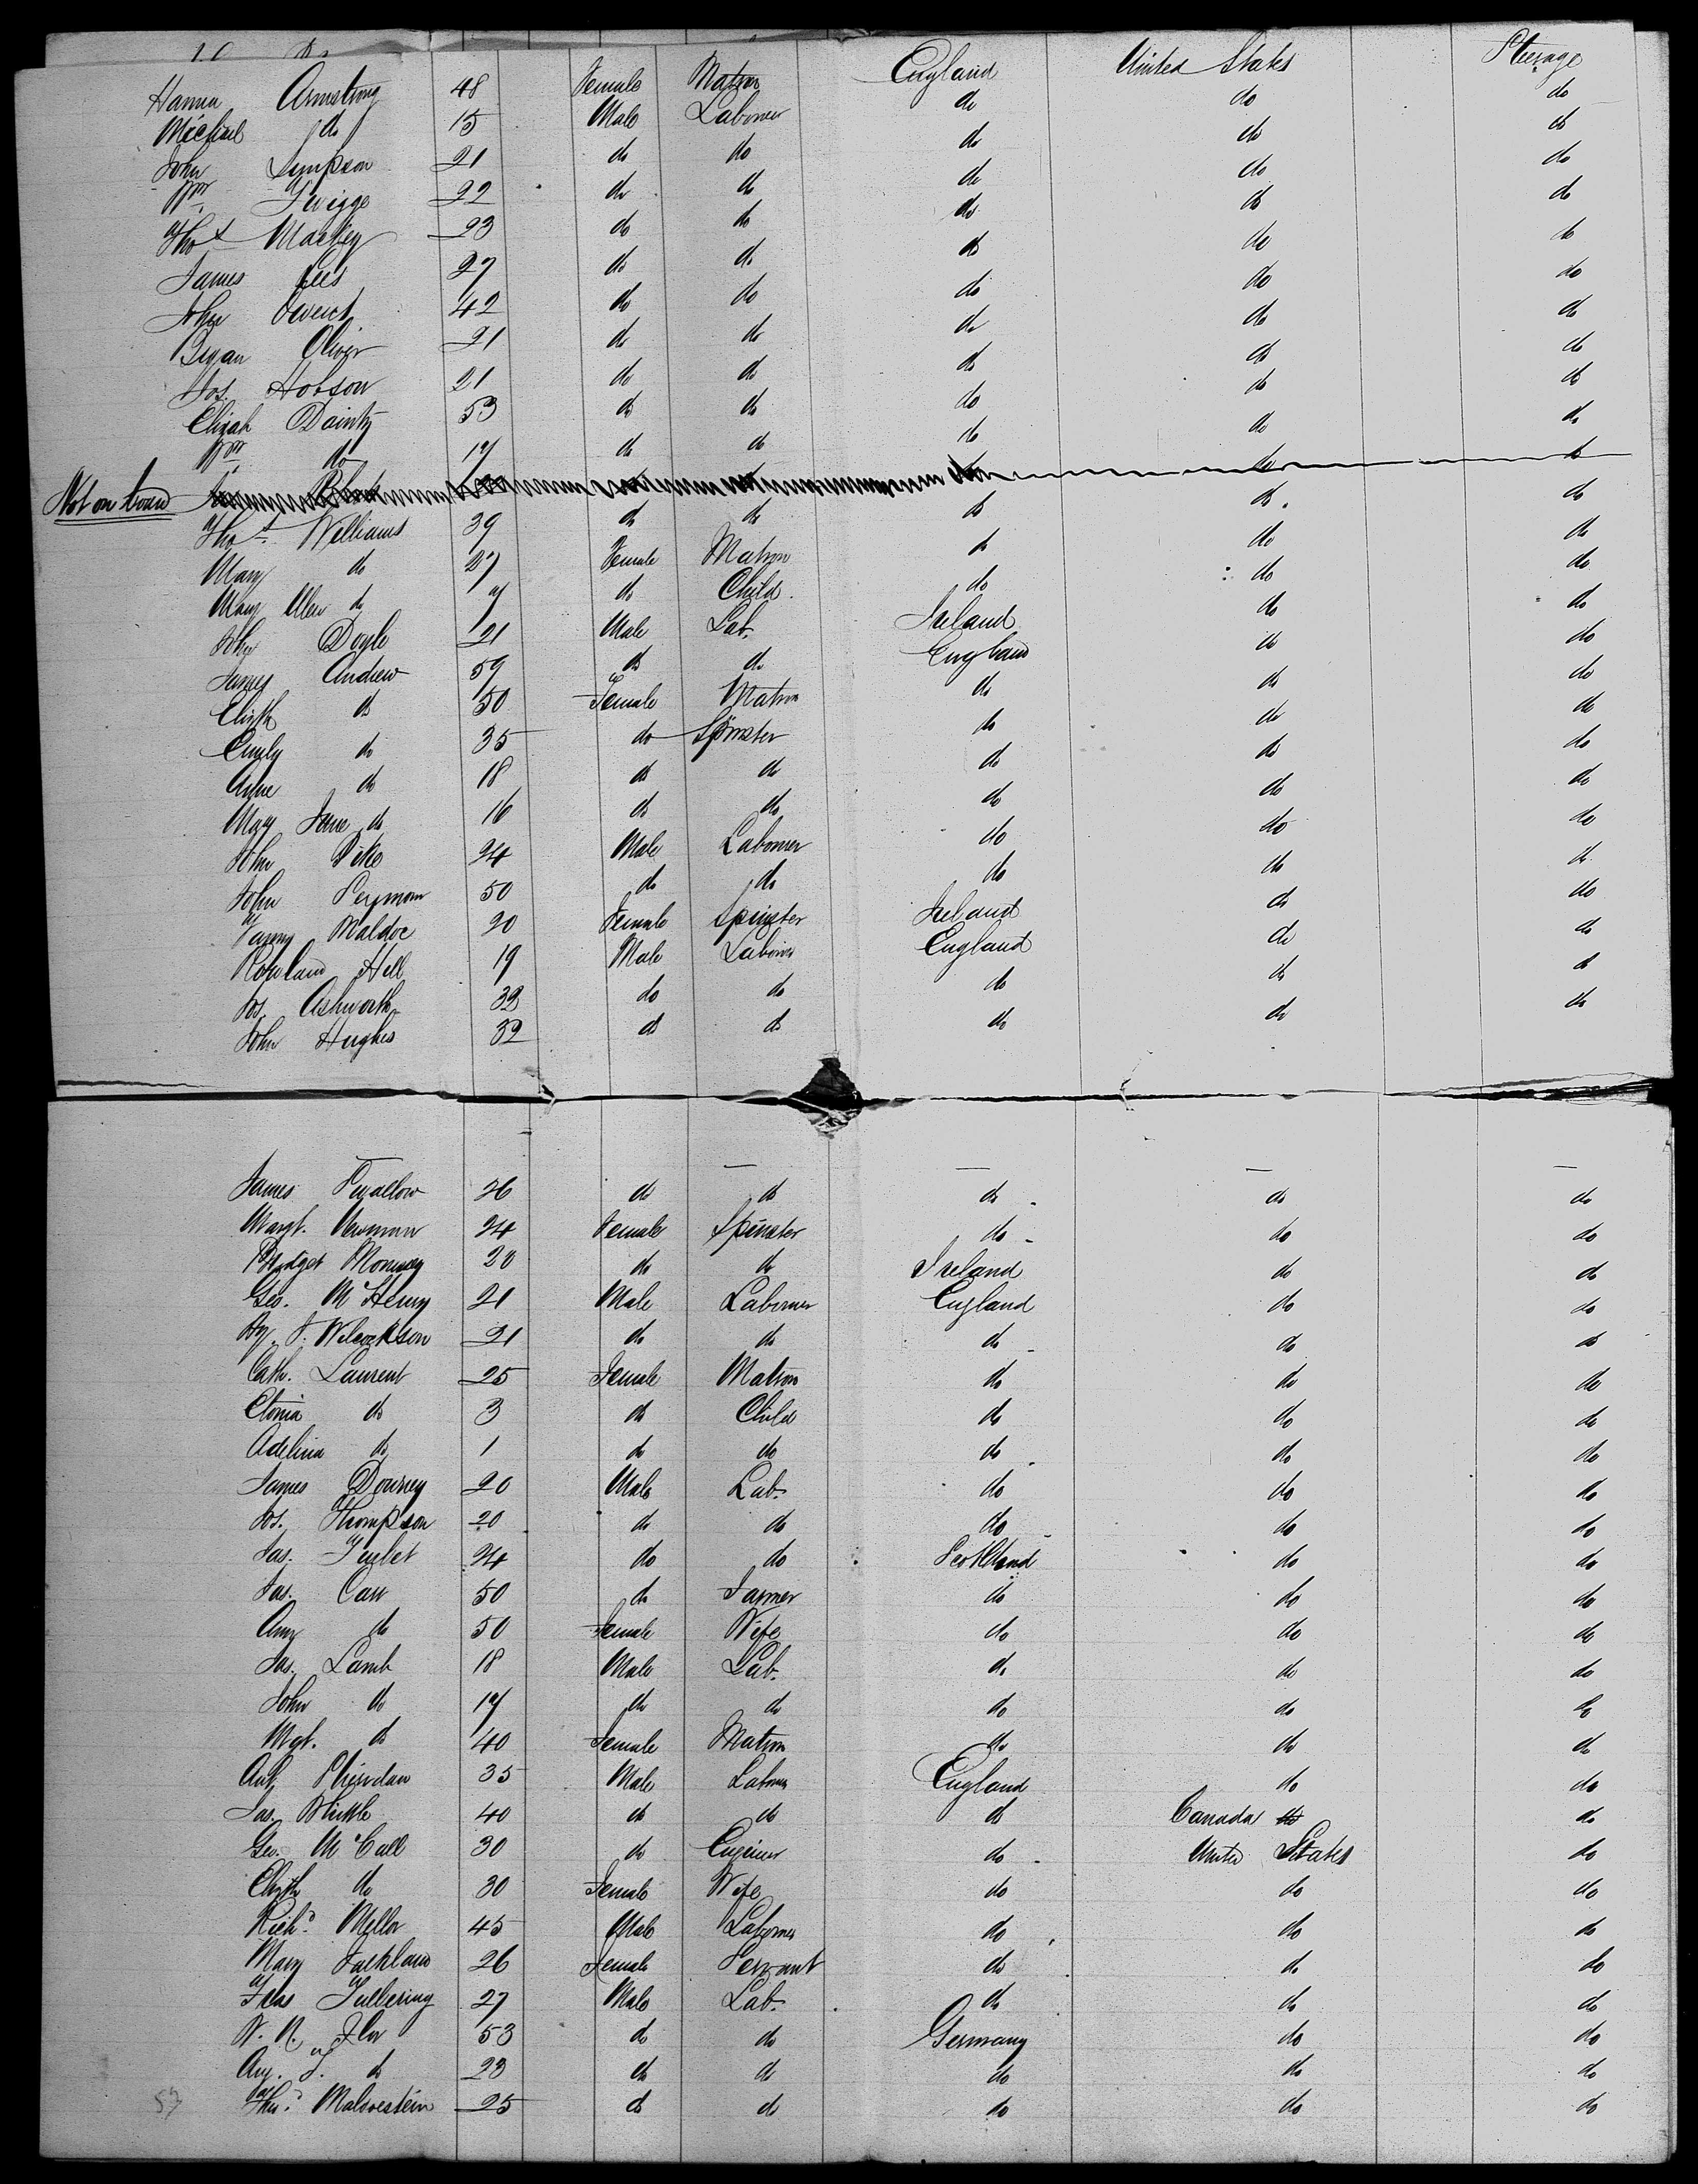 Hanna Armstrong 48 Female Matron England United States Steerage
Michael do 15 Male Laborer do do do
John Simpson 21 do do do do do
Wm Twigge 22 do do do do do
Thos Mackey 23 do do do do do
James Lees 27 do do do do do
John 42 do do do do do
Bryan Oliver 21 do do do do do
Jos. Hobson 21 do do do do do
Elijah Dainty 53 do do do do do
Wm do 17 do do do do do
Not on board do do
Thos Williams 39 do do do do do
Mary do 27 Female Matron do do do
Mary Ellen do 7 do Child do do do
John Doyle 21 Male Lab. Ireland do do
James Andrew 59 do do England do do
Elizth do 50 Female Matron do do do
Emily do 35 do Spinster do do do
Anne do 18 do do do do do
Mary Jane do 16 do do do do do
John Pike 24 Male Laborer do do do
John Seymour 50 do do do do do
Fanny Maldoc 20 Female Spinster Ireland do do
Rowland Hill 19 Male Laborer England do do
Jos. Ashworth 32 do do do do do
John Hughes 32 do do do do do
James Swallow 26 do do do do do
Margt. Newman 24 Female Spinster do do do
Bridget 20 do do Ireland do do
Geo. McHenry 21 Male Laborer England do do
Wilcockson 21 do do do do do
Cath. Laurent 25 Female Matron do do do
do 3 do Child do do do
Adelina do 1 do do do do do
James Downey 20 Male Lab. do do do
Jos. Thompson 20 do do do do do
Jas. Turbet 24 do do Scotland do do
Jas. Carr 50 do Farmer do do do
Amy do 50 Female Wife do do do
Jas. Lamb 18 Male Lab. do do do
John do 17 do do do do do
Mgt. do 40 Female Matron do do do
Anty Sheridan 35 Male Laborer England do do
Jas. 40 do do do Canada do
Geo. McCall 30 do Engineer do United States do
Elizth do 30 Female Wife do do do
Richd Mellor 45 Male Laborer do do do
Mary Falkland 26 Female Servant do do do
27 Male Lab. do do do
W. N. 53 do do Germany do do
Aug. F. do 23 do do do do do
Malovestein 25 do do do do do
57